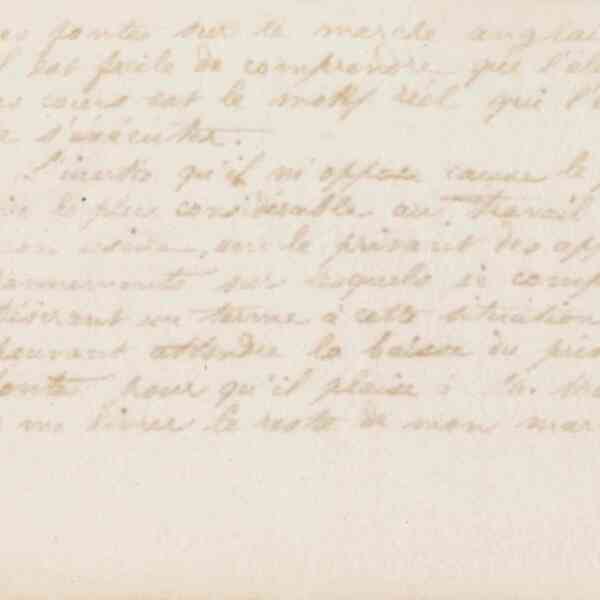 fontes sur le marché anglai
il est facile de comprendre que l'élé
cours est le motif réel qui l'e
s'exécuter.
L'inertie qu'il m'oppose cause le
le plus considérable au travail
mon usine, en le privant des app
sur lesquels je comp
désirant un terme à cette situation
pouvant attendre la baisse du prix
fonte pour qu'il plaise à M.
me livrer le reste de mon mar